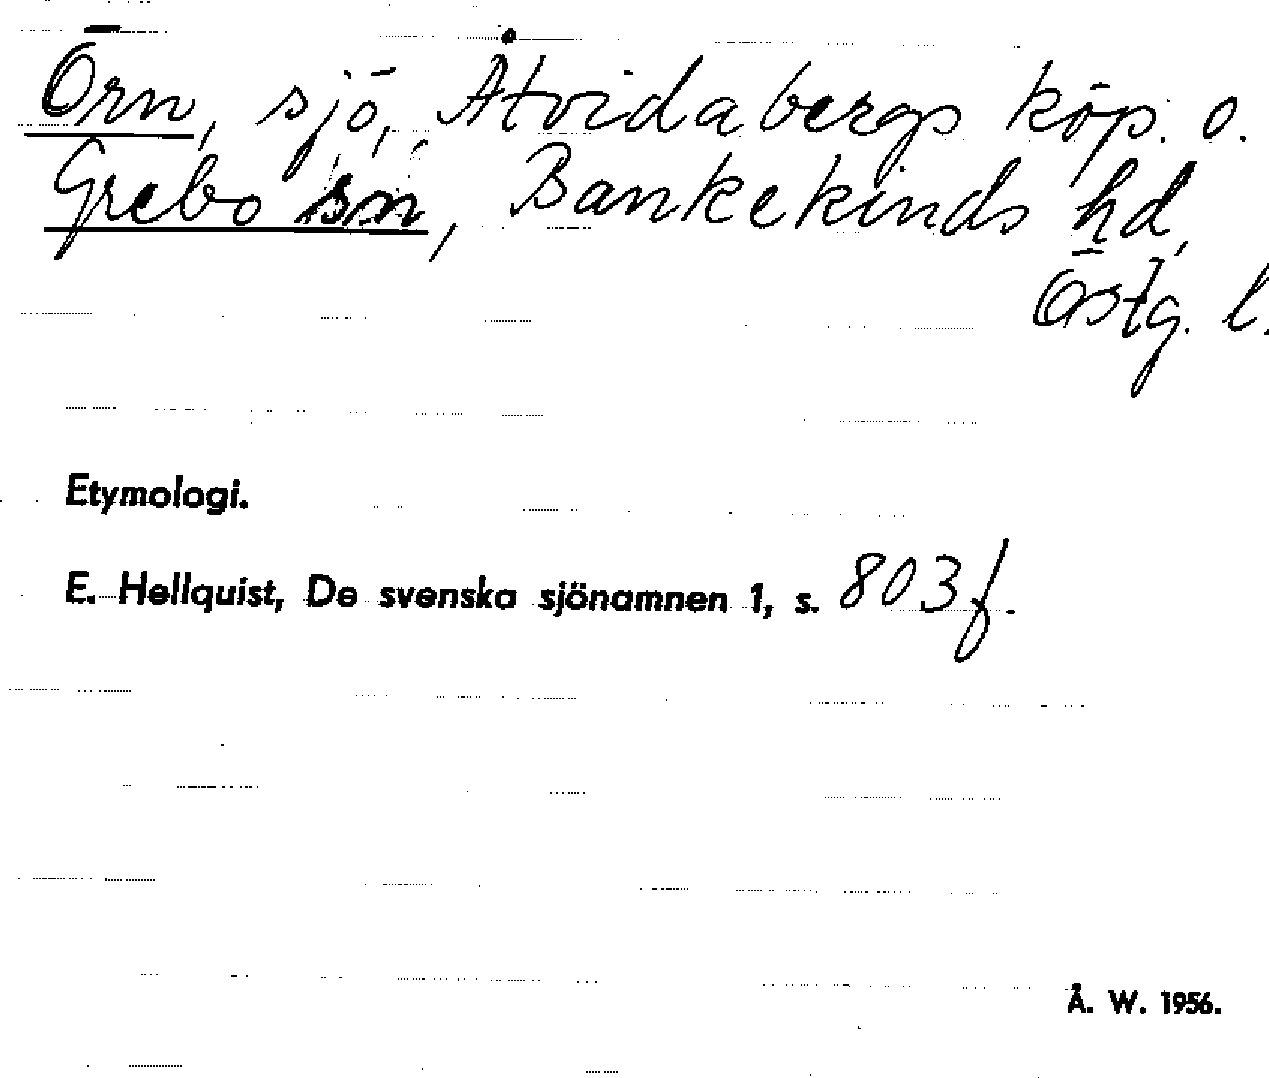 Örn, sjö, Åtvidabergs köp. o.
Grebo sn, Bankekinds hd,
Östg. l.
Etymologi.
E. Hellquist, De svenska sjönamnen 1, s. 803 f.
Å. W. 1956.